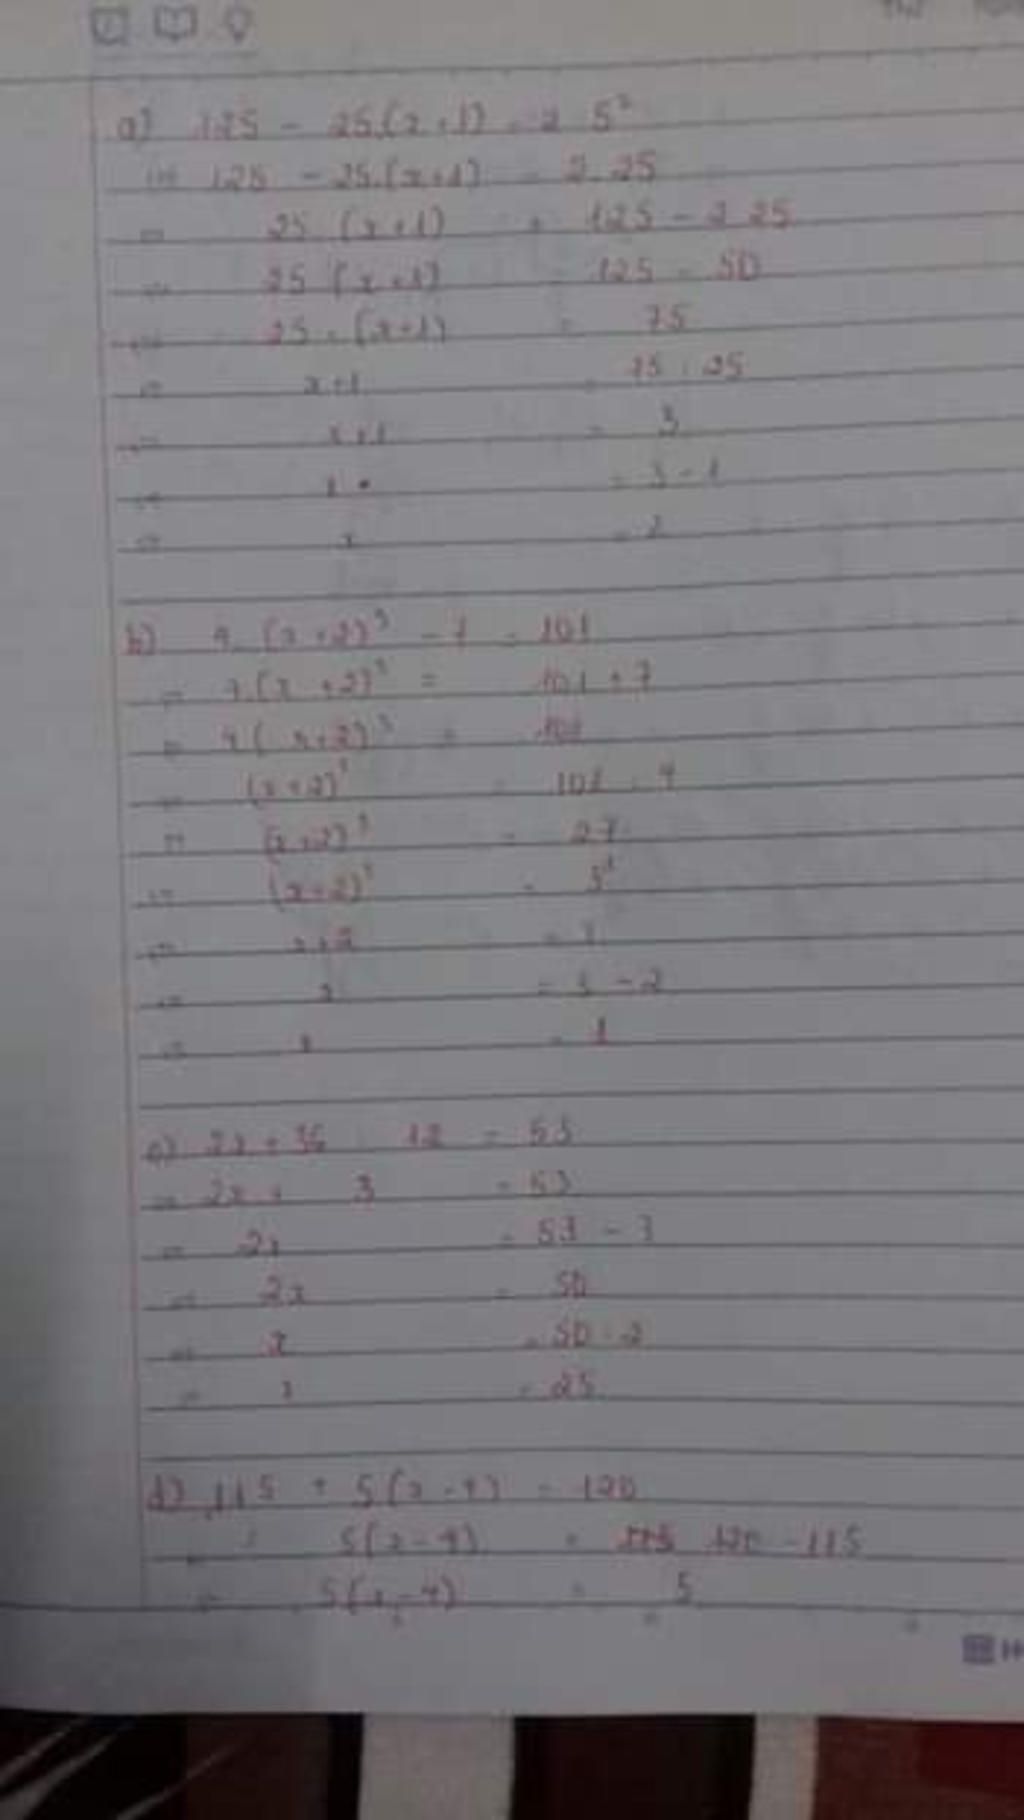 a) 125 - 25.(x+1) = 2.5²
⇔ 125 - 25.(x+1) = 2.25
⇔ 25.(x+1) = 125 - 2.25
⇔ 25.(x+1) = 125 - 50
⇔ 25.(x+1) = 75
⇔ x+1 = 75 : 25
⇔ x+1 = 3
⇔ x = 3 - 1
⇔ x = 2
b) 4.(x+2)³ - 7 = 101
⇔ 4.(x+2)³ = 101 + 7
⇔ 4(x+2)³ = 108
⇔ (x+2)³ = 108 : 4
⇔ (x+2)³ = 27
⇔ (x+2)³ = 3³
⇔ x+2 = 3
⇔ x = 3 - 2
⇔ x = 1
c) 2x + 36 : 12 = 53
⇔ 2x + 3 = 53
⇔ 2x = 53 - 3
⇔ 2x = 50
⇔ x = 50 : 2
⇔ x = 25
d) 115 + 5(x-4) = 120
⇔ 5(x-4) = 120 - 115
⇔ 5(x-4) = 5